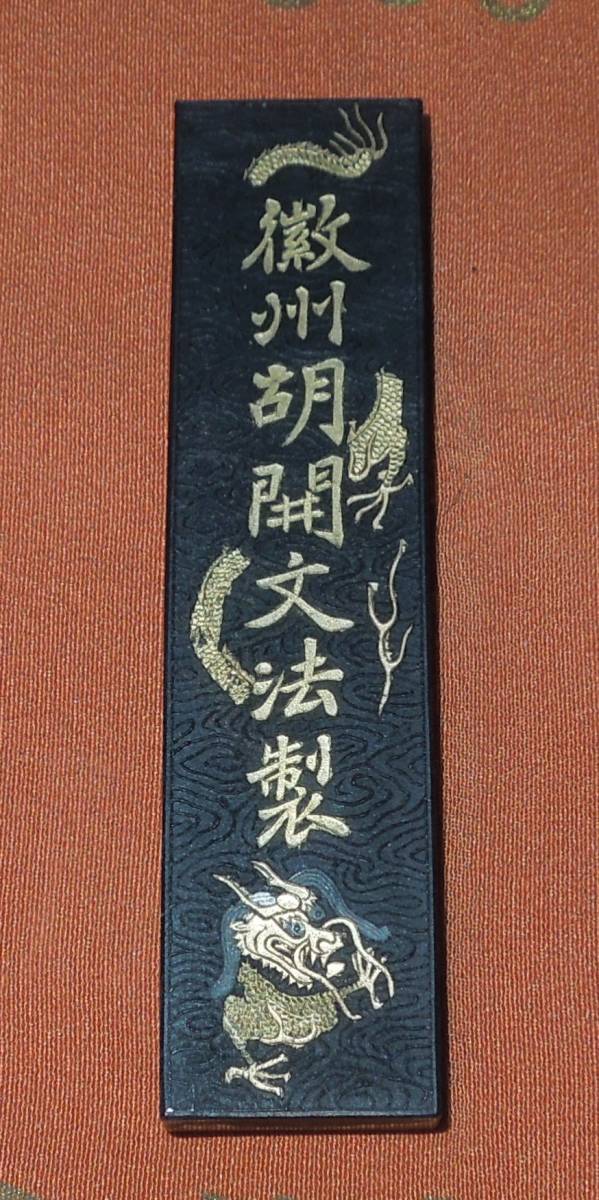 徽州胡開文法製